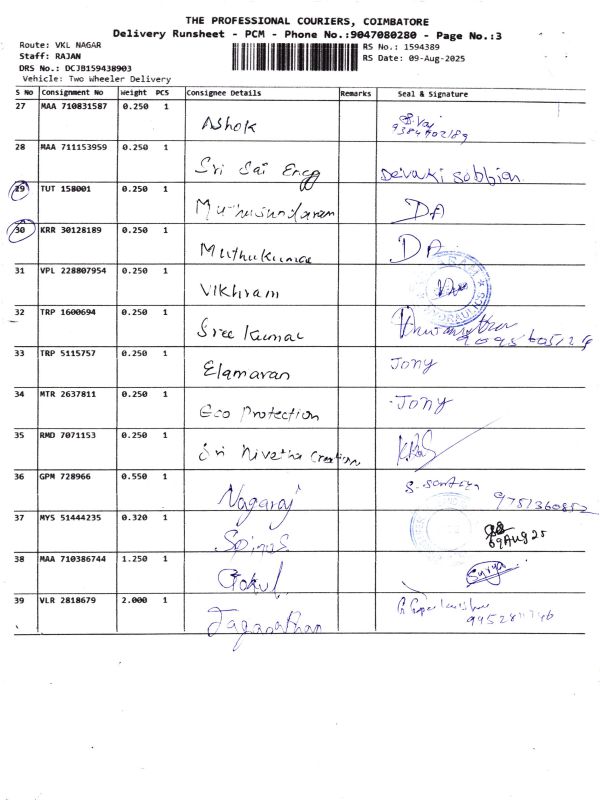 THE PROFESSIONAL COURIERS, COIMBATORE
Delivery Runsheet - PCM - Phone No.:9047080280 - Page No.:3
Route: VKL NAGAR
RS No.: 1594389
Staff: RAJAN
RS Date: 09-Aug-2025
DRS No.: DCJB159438903
Vehicle: Two Wheeler Delivery
S No Consignment No Weight PCS Consignee Details Remarks Seal & Signature
27 MAA 710831587 0.250 1 Ashok
28 MAA 711153959 0.250 1 Sri Sai Engg Devaki Sobbian
29 TUT 158001 0.250 1 Muthusundaram DA
30 KRR 30128189 0.250 1 Muthukumar DA
31 VPL 228807954 0.250 1 Vikhram
32 TRP 1600694 0.250 1 Sree Kumar
33 TRP 5115757 0.250 1 Elamaran Jony
34 MTR 2637811 0.250 1 Eco Protection Jony
35 RMD 7071153 0.250 1 Sri Nivetha Creations
36 GPM 728966 0.550 1 Nagaraj 9751360852
37 MYS 51444235 0.320 1 09 AUG 25
38 MAA 710386744 1.250 1 Gokul Surya
39 VLR 2818679 2.000 1 Jaganathan